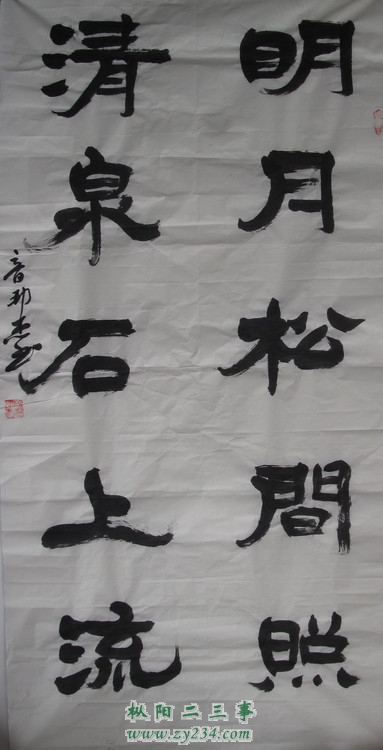 明月松間照
清泉石上流
枞阳二三事
www.zy234.com